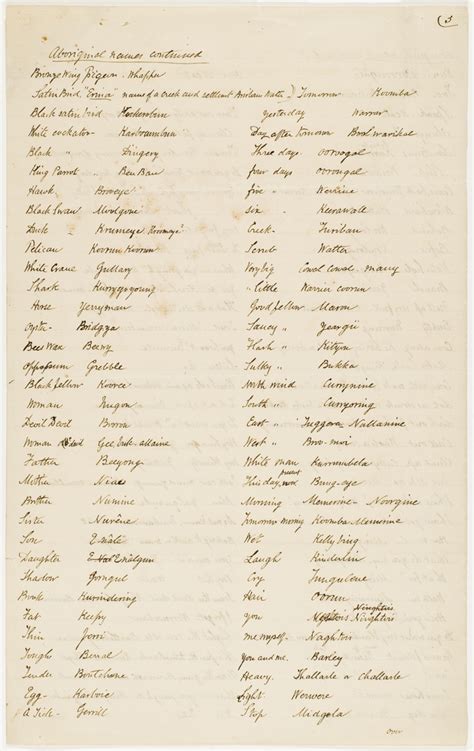 (5
Aboriginal names continued
Bronze Wing Pigeon. Whappa
Satin Bird. "Erina" name of a creek and settlement Brisbane Water
Black satin bird
White cockatoo-
Black " Dingery
King Parrot " Ben Ban
Hawk Broveye
Black Swan Mulgone
Duck Krumeye
Pelican Kooron Kooron
White Crane Gullary
Shark Kurrygoyoung
Horse Yerryman
Oyster- Bridgya
Bees Wax Beewy
Oppossum Grebble
Black fellow Kooree
Woman Nugon
Devil Devil Borron
Woman
Father Beeyong
Mother
Brother Numine
Sister
Son
Daughter
Shadow Gorngul
Book Kurindering
Fat Keepy
Thin Jorri
Tough Birral
Tender
Egg- Karbore
A Tick- Gerril
Tomorrow Koomba
yesterday Warrow
Day after tomorrow
Three days oorogal
four days oorongal
five " Werrine
six Keerawall
Creek- Turiban
Scrub Watter
Very big Cowal Cowal. many
" Little Warrin worrun
Good fellow Maron
Saucy " Yeargii
Flash " Kityun
Sulky " Bukka
North wind Currynine
South " Curryoring
East " Tuggera Nullanine
West " Broo-moi
White man Kurrumbela
This day, Bung-aye
Morning Memerine- Noorgine
Tomorrow morning Koomba Memerine
Wet Kellybing
Laugh Kindulin
Cry Tungulene
Hair Ooron
you Neughtois
me myself- Naghtoi
you and me. Barley
Heavy. Thallarte a challarte
Light Worwore
Stop Midgola
over